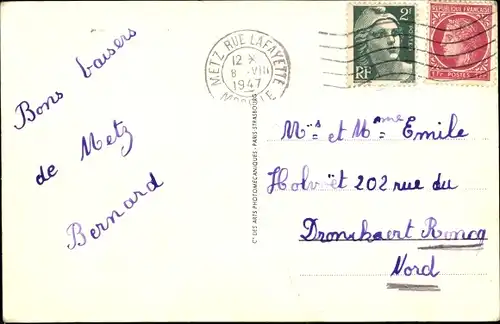 Bons baisers
de Metz
Bernard
METZ RUE LAFAYETTE
12 X
8 VIII
1947
MOSELLE
2F
RF
REPUBLIQUE FRANÇAISE
1Fr POSTES
Cie DES ARTS PHOTOMÉCANIQUES - PARIS-STRASBOURG
Mrs et Mme Emile
Holvoët 202 rue du
Dronckaert Roncq
Nord